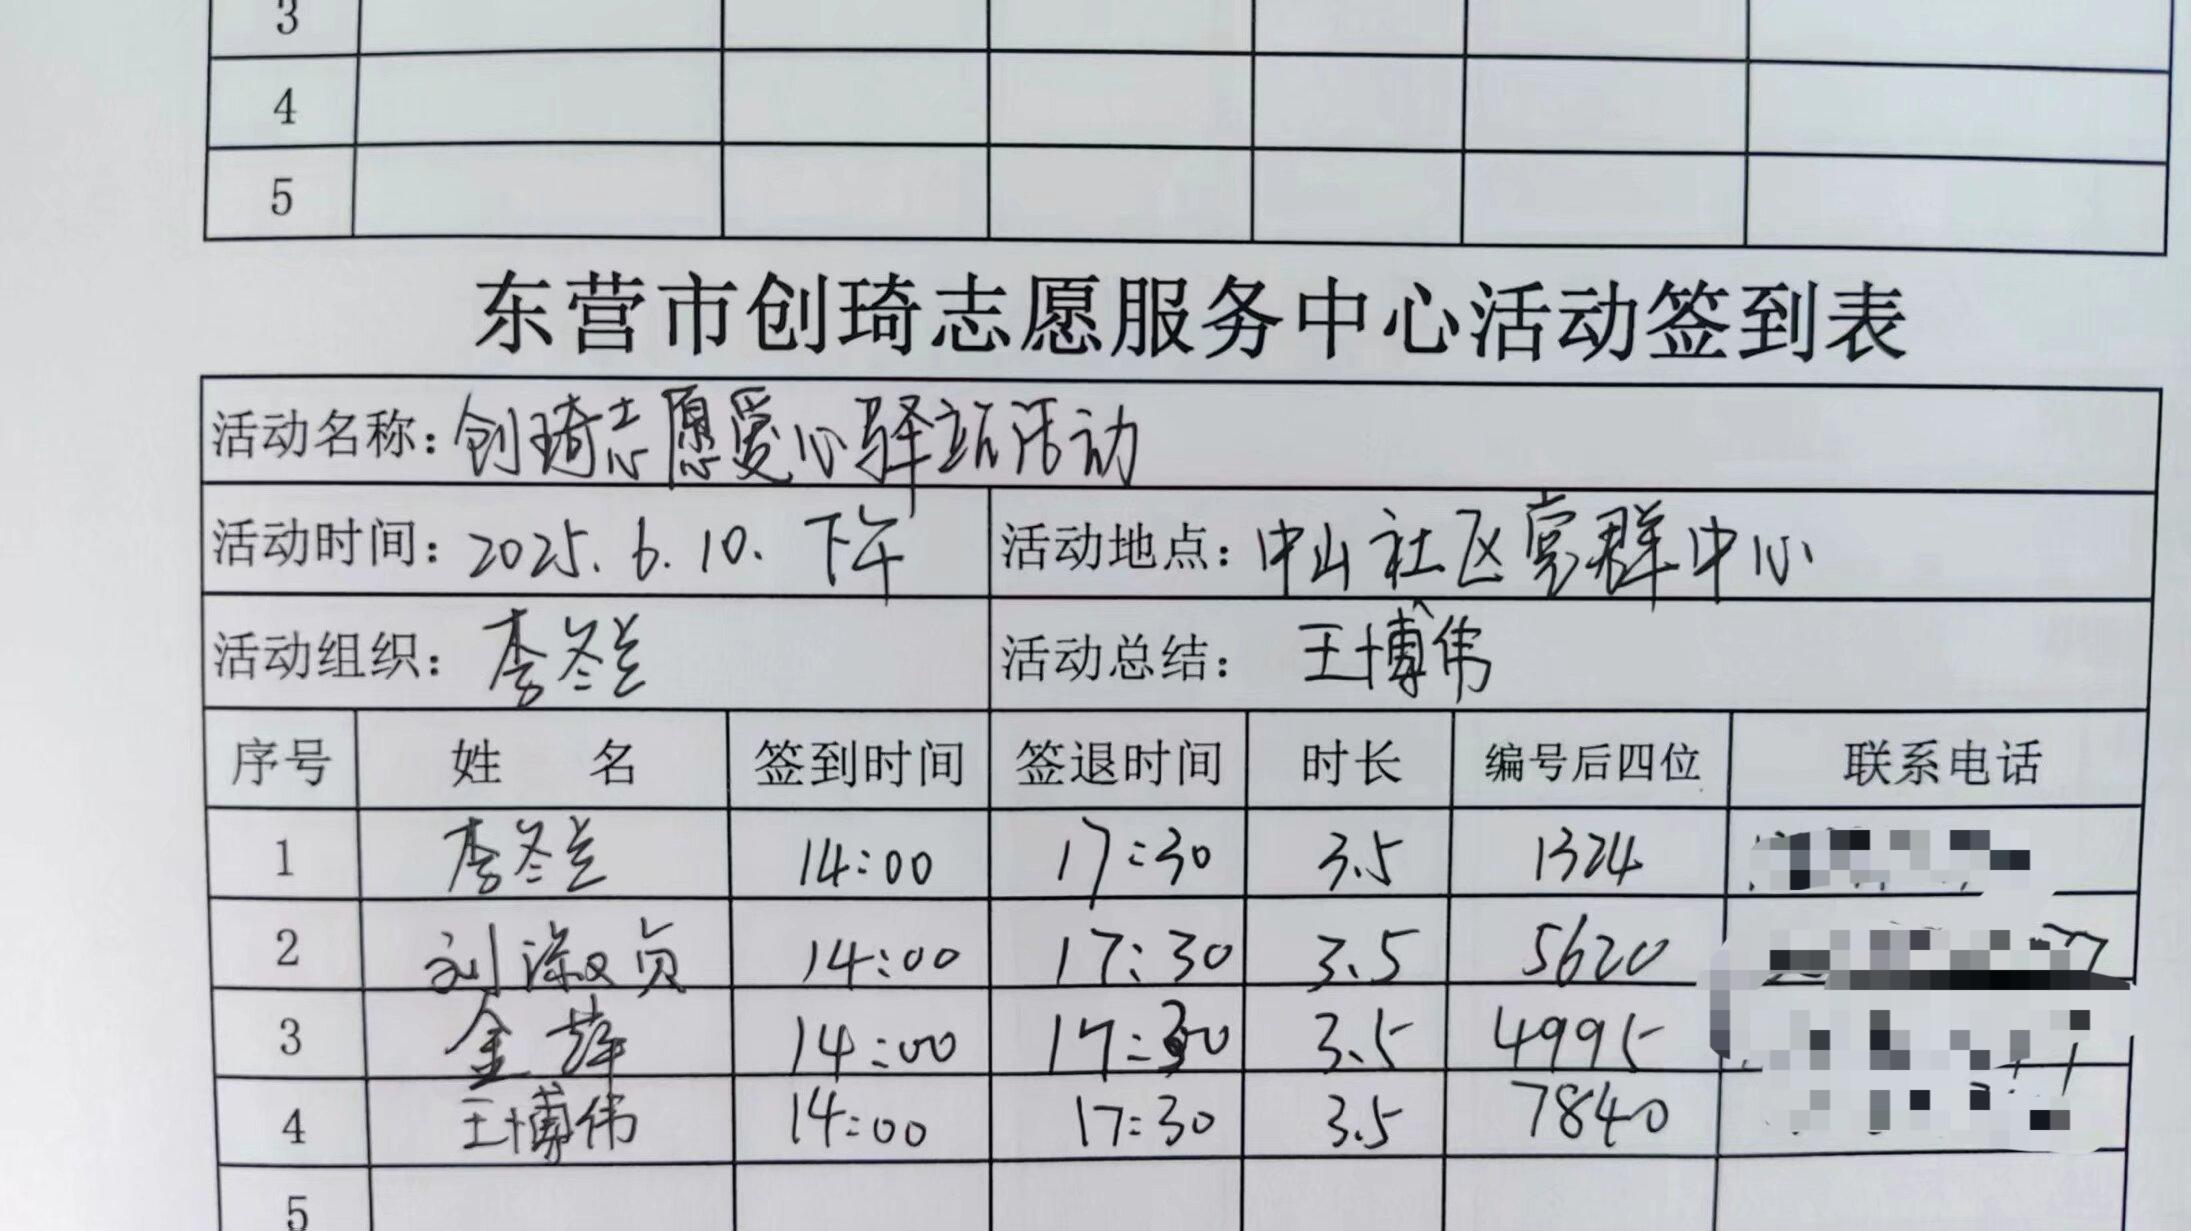 3
4
5
东营市创琦志愿服务中心活动签到表
活动名称：创琦志愿爱心驿站活动
活动时间：2025.6.10.下午 活动地点：中山社区党群中心
活动组织：李冬兰 活动总结：王博伟
序号 姓名 签到时间 签退时间 时长 编号后四位 联系电话
1 李冬兰 14:00 17:30 3.5 1324
2 刘淑贞 14:00 17:30 3.5 5620
3 金萍 14:00 17:30 3.5 4995
4 王博伟 14:00 17:30 3.5 7840
5